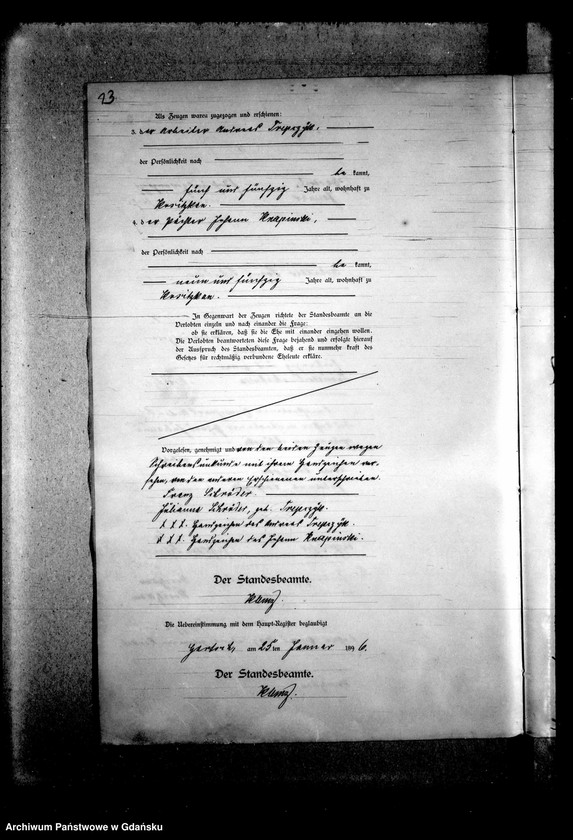 23
Als Zeugen waren zugezogen und erschienen:
3. der Arbeiter Andreas Trepczyk,
der Persönlichkeit nach
be kannt,
fünf und fünfzig Jahre alt, wohnhaft zu
4. der Pächter Johann Knapinski,
der Persönlichkeit nach
be kannt,
neun und fünfzig Jahre alt, wohnhaft zu
In Gegenwart der Zeugen richtete der Standesbeamte an die
Verlobten einzeln und nach einander die Frage:
ob sie erklären, daß sie die Ehe mit einander eingehen wollen.
Die Verlobten beantworteten diese Frage bejahend und erfolgte hierauf
der Ausspruch des Standesbeamten, daß er sie nunmehr kraft des
Gesetzes für rechtmäßig verbundene Eheleute erkläre.
Vorgelesen, genehmigt und von den beiden Zeugen wegen
Schreibensunkunde mit ihrem Handzeichen ver-
sehen, von den anderen Erschienenen unterschrieben.
Franz Schröder.
Julianna Schröder, geb. Trepczyk.
+++ Handzeichen des Andreas Trepczyk.
+++ Handzeichen des Johann Knapinski.
Der Standesbeamte.
Die Uebereinstimmung mit dem Haupt-Register beglaubigt
am 25 ten Januar 1896.
Der Standesbeamte.
Archiwum Państwowe w Gdańsku